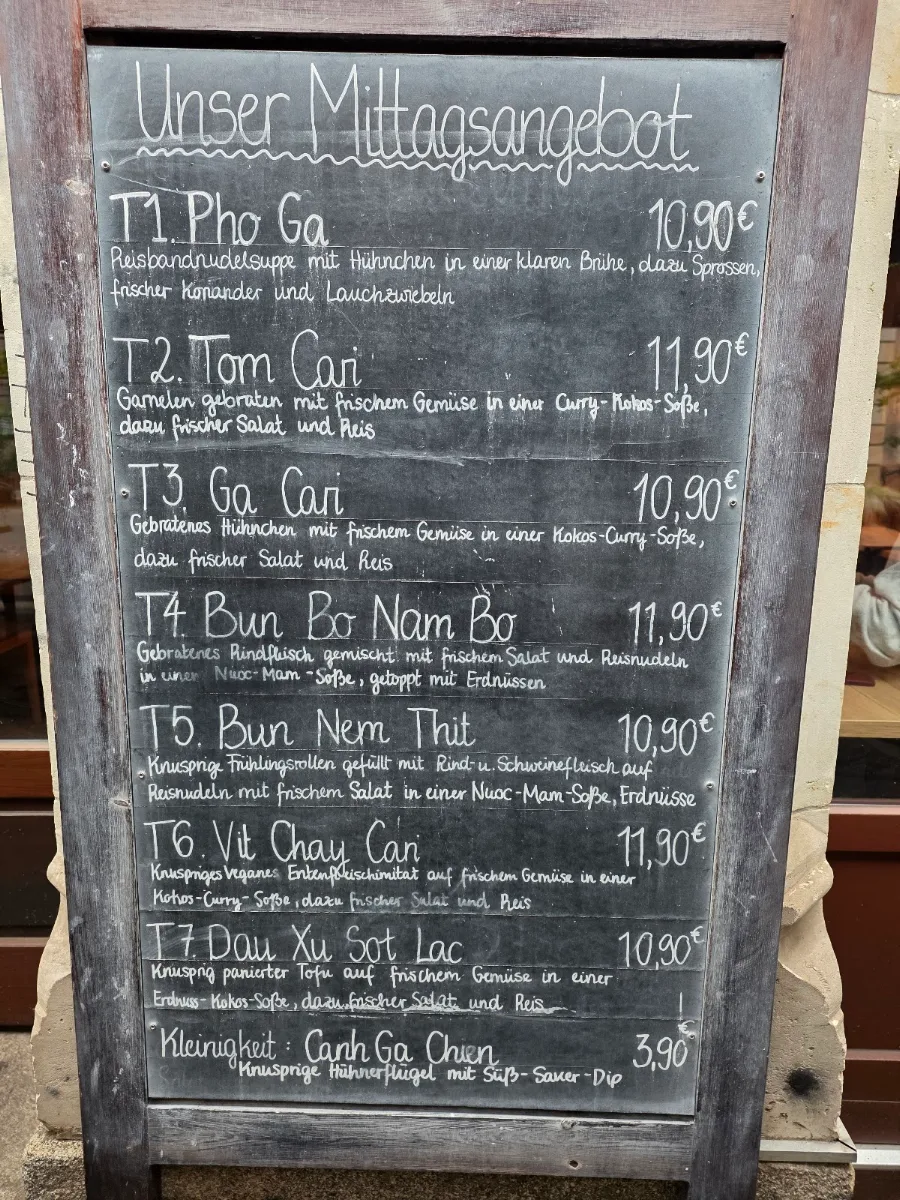 Unser Mittagsangebot
T1. Pho Ga 10,90€
Reisbandnudelsuppe mit Hühnchen in einer klaren Brühe, dazu Sprossen,
frischer Koriander und Lauchzwiebeln
T2. Tom Cari 11,90€
Garnelen gebraten mit frischem Gemüse in einer Curry-Kokos-Soße,
dazu frischer Salat und Reis
T3. Ga Cari 10,90€
Gebratenes Hühnchen mit frischem Gemüse in einer Kokos-Curry-Soße,
dazu frischer Salat und Reis
T4. Bun Bo Nam Bo 11,90€
Gebratenes Rindfleisch gemischt mit frischem Salat und Reisnudeln
in einer Nuoc-Mam-Soße, getoppt mit Erdnüssen
T5. Bun Nem Thit 10,90€
Knusprige Frühlingsrollen gefüllt mit Rind-u. Schweinefleisch auf
Reisnudeln mit frischem Salat in einer Nuoc-Mam-Soße, Erdnüsse
T6. Vit Chay Cari 11,90€
Knuspriges Veganes Entenfleischimitat auf frischem Gemüse in einer
Kokos-Curry-Soße, dazu frischer Salat und Reis
T7. Dau Xu Sot Lac 10,90€
Knusprig panierter Tofu auf frischem Gemüse in einer
Erdnuss-Kokos-Soße, dazu frischer Salat und Reis
Kleinigkeit: Canh Ga Chien 3,90€
Knusprige Hühnerflügel mit Süß-Sauer-Dip